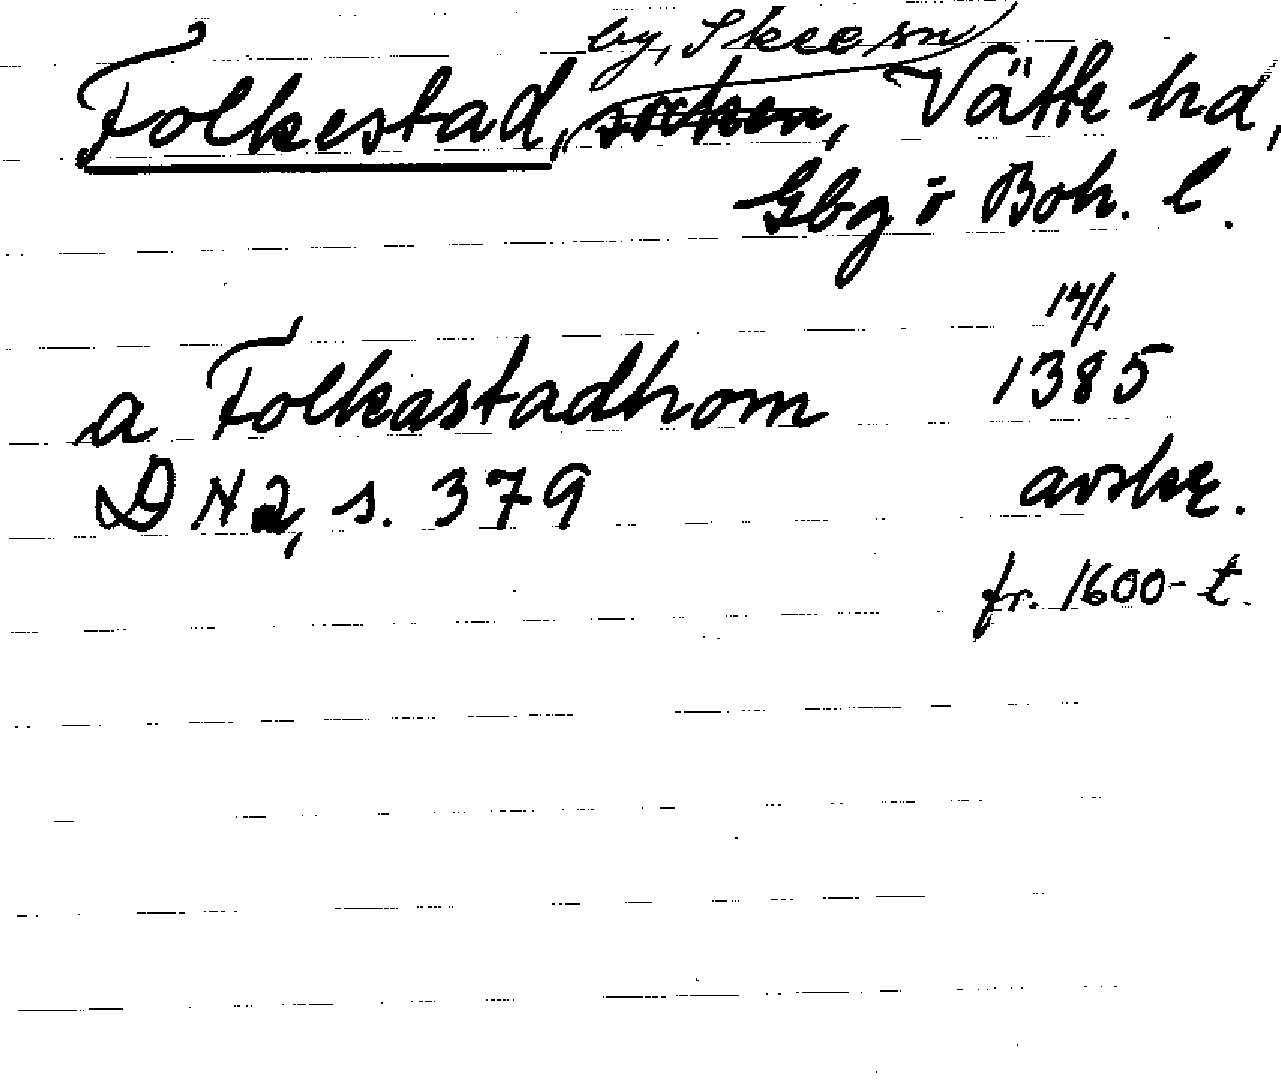 by, Skee sn
Folkestad, socken, Vätte hd,
Gbg o Boh. l.
14/1
a Folkastadhom 1385
DN 2, s. 379 avskr.
fr. 1600-t.